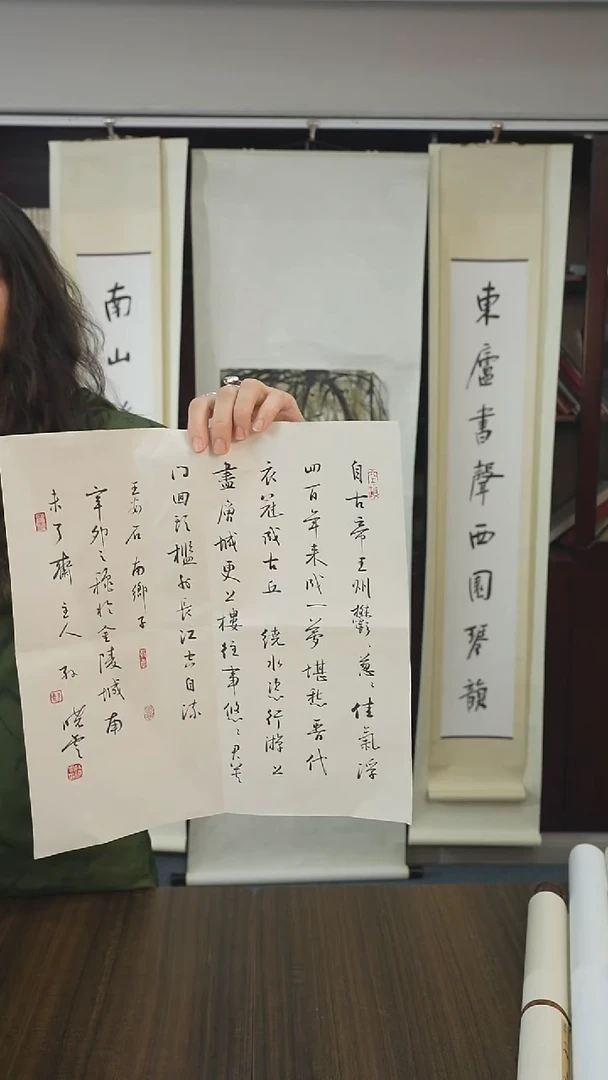 東廬書聲西園琴韻
自古帝王州鬱〻蔥〻佳氣浮
四百年来成一夢堪愁晋代
衣冠成古丘 繞水恣行游上
盡層城更上樓往事悠〻君莫
问回頭檻外長江空自流
王安石南鄉子
辛卯之穐於金陵城南
未了齋主人孫曉雲
南山